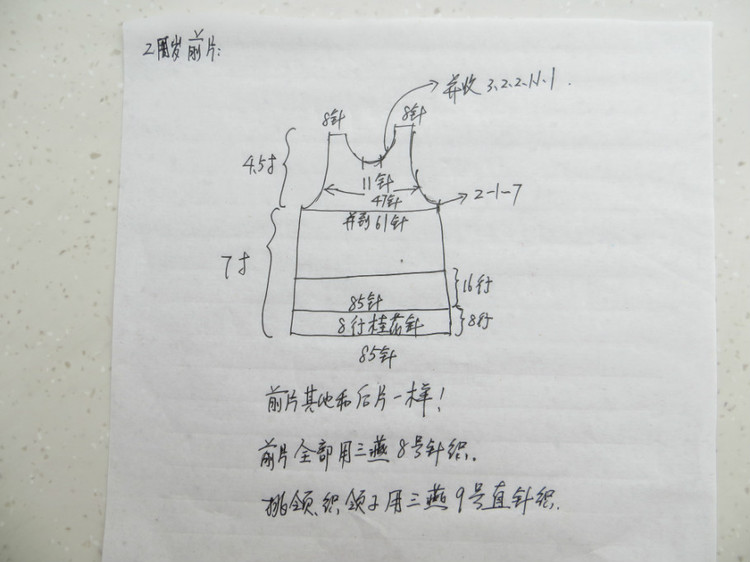 2周岁前片:
并收3.2.2.1.1.1.
8针
8针
4.5寸
11针
47针
2-1-7
并到61针
7寸
16行
85针
8行桂花针
8行
85针
前片其他和后片一样!
前片全部用三燕8号针织.
挑领.织领子用三燕9号直针织.